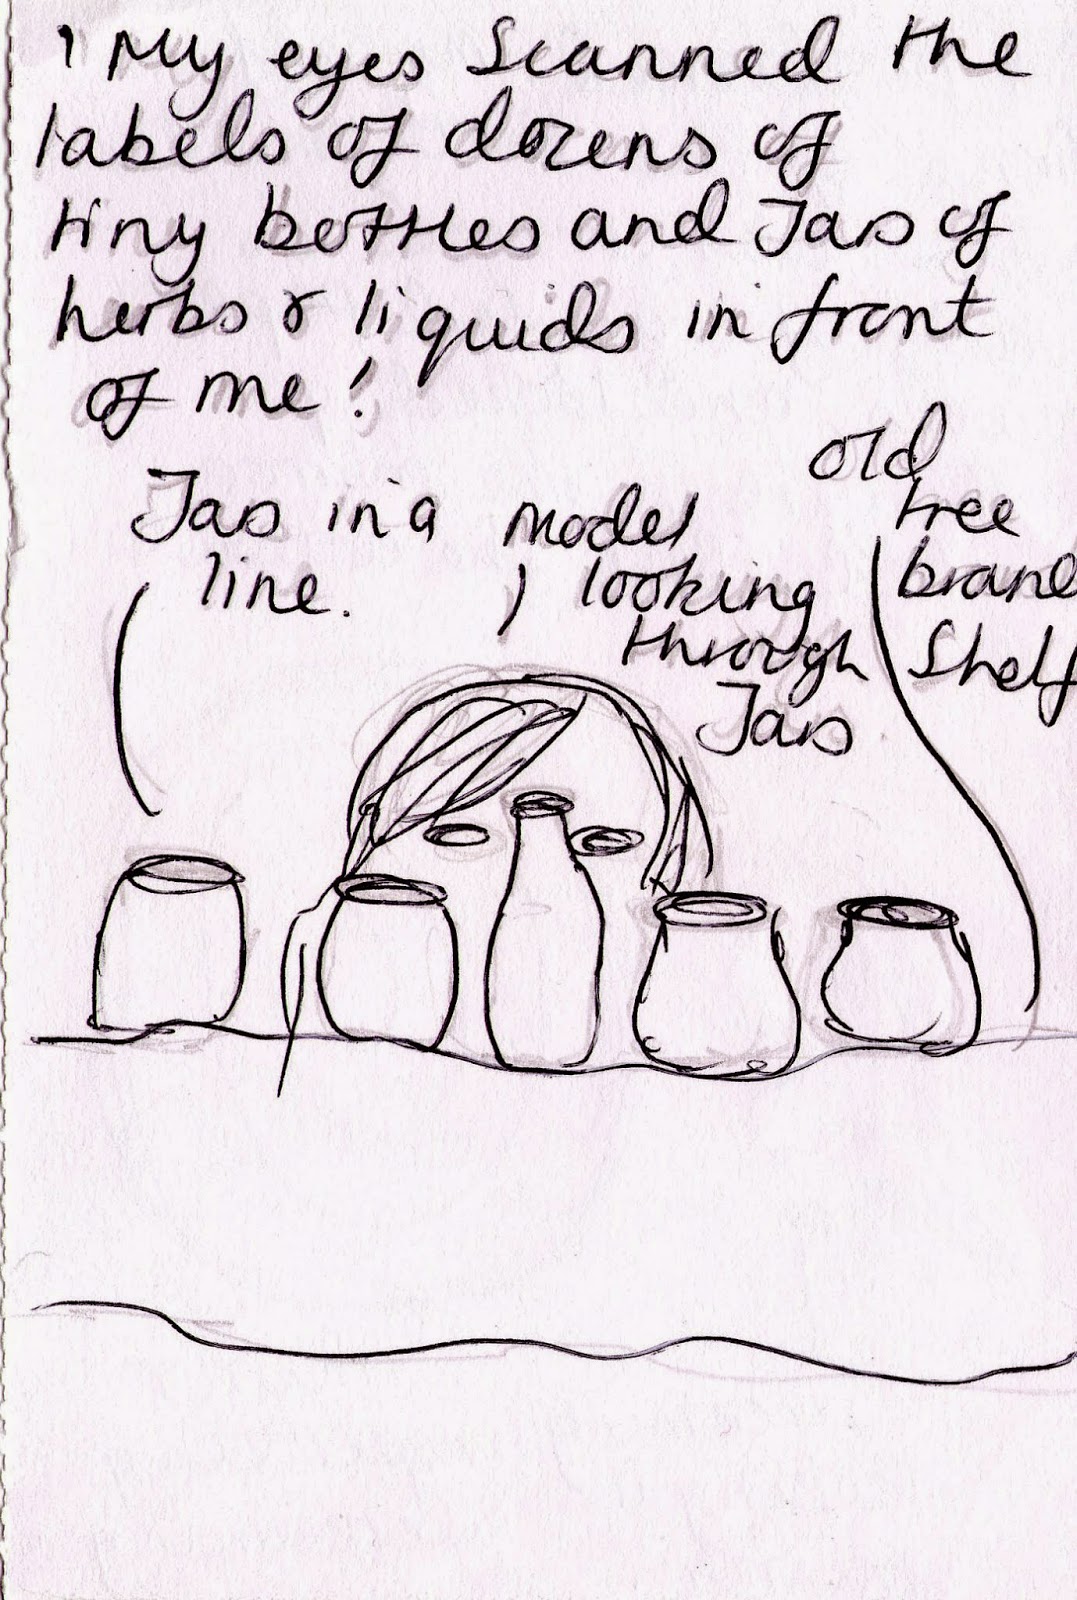 ' My eyes Scanned the
labels of dozens of
tiny bottles and Jars of
herbs & liquids in front
of me!
Jars in a
line.
model
looking
through
Jars
old
tree
branc
Shelf